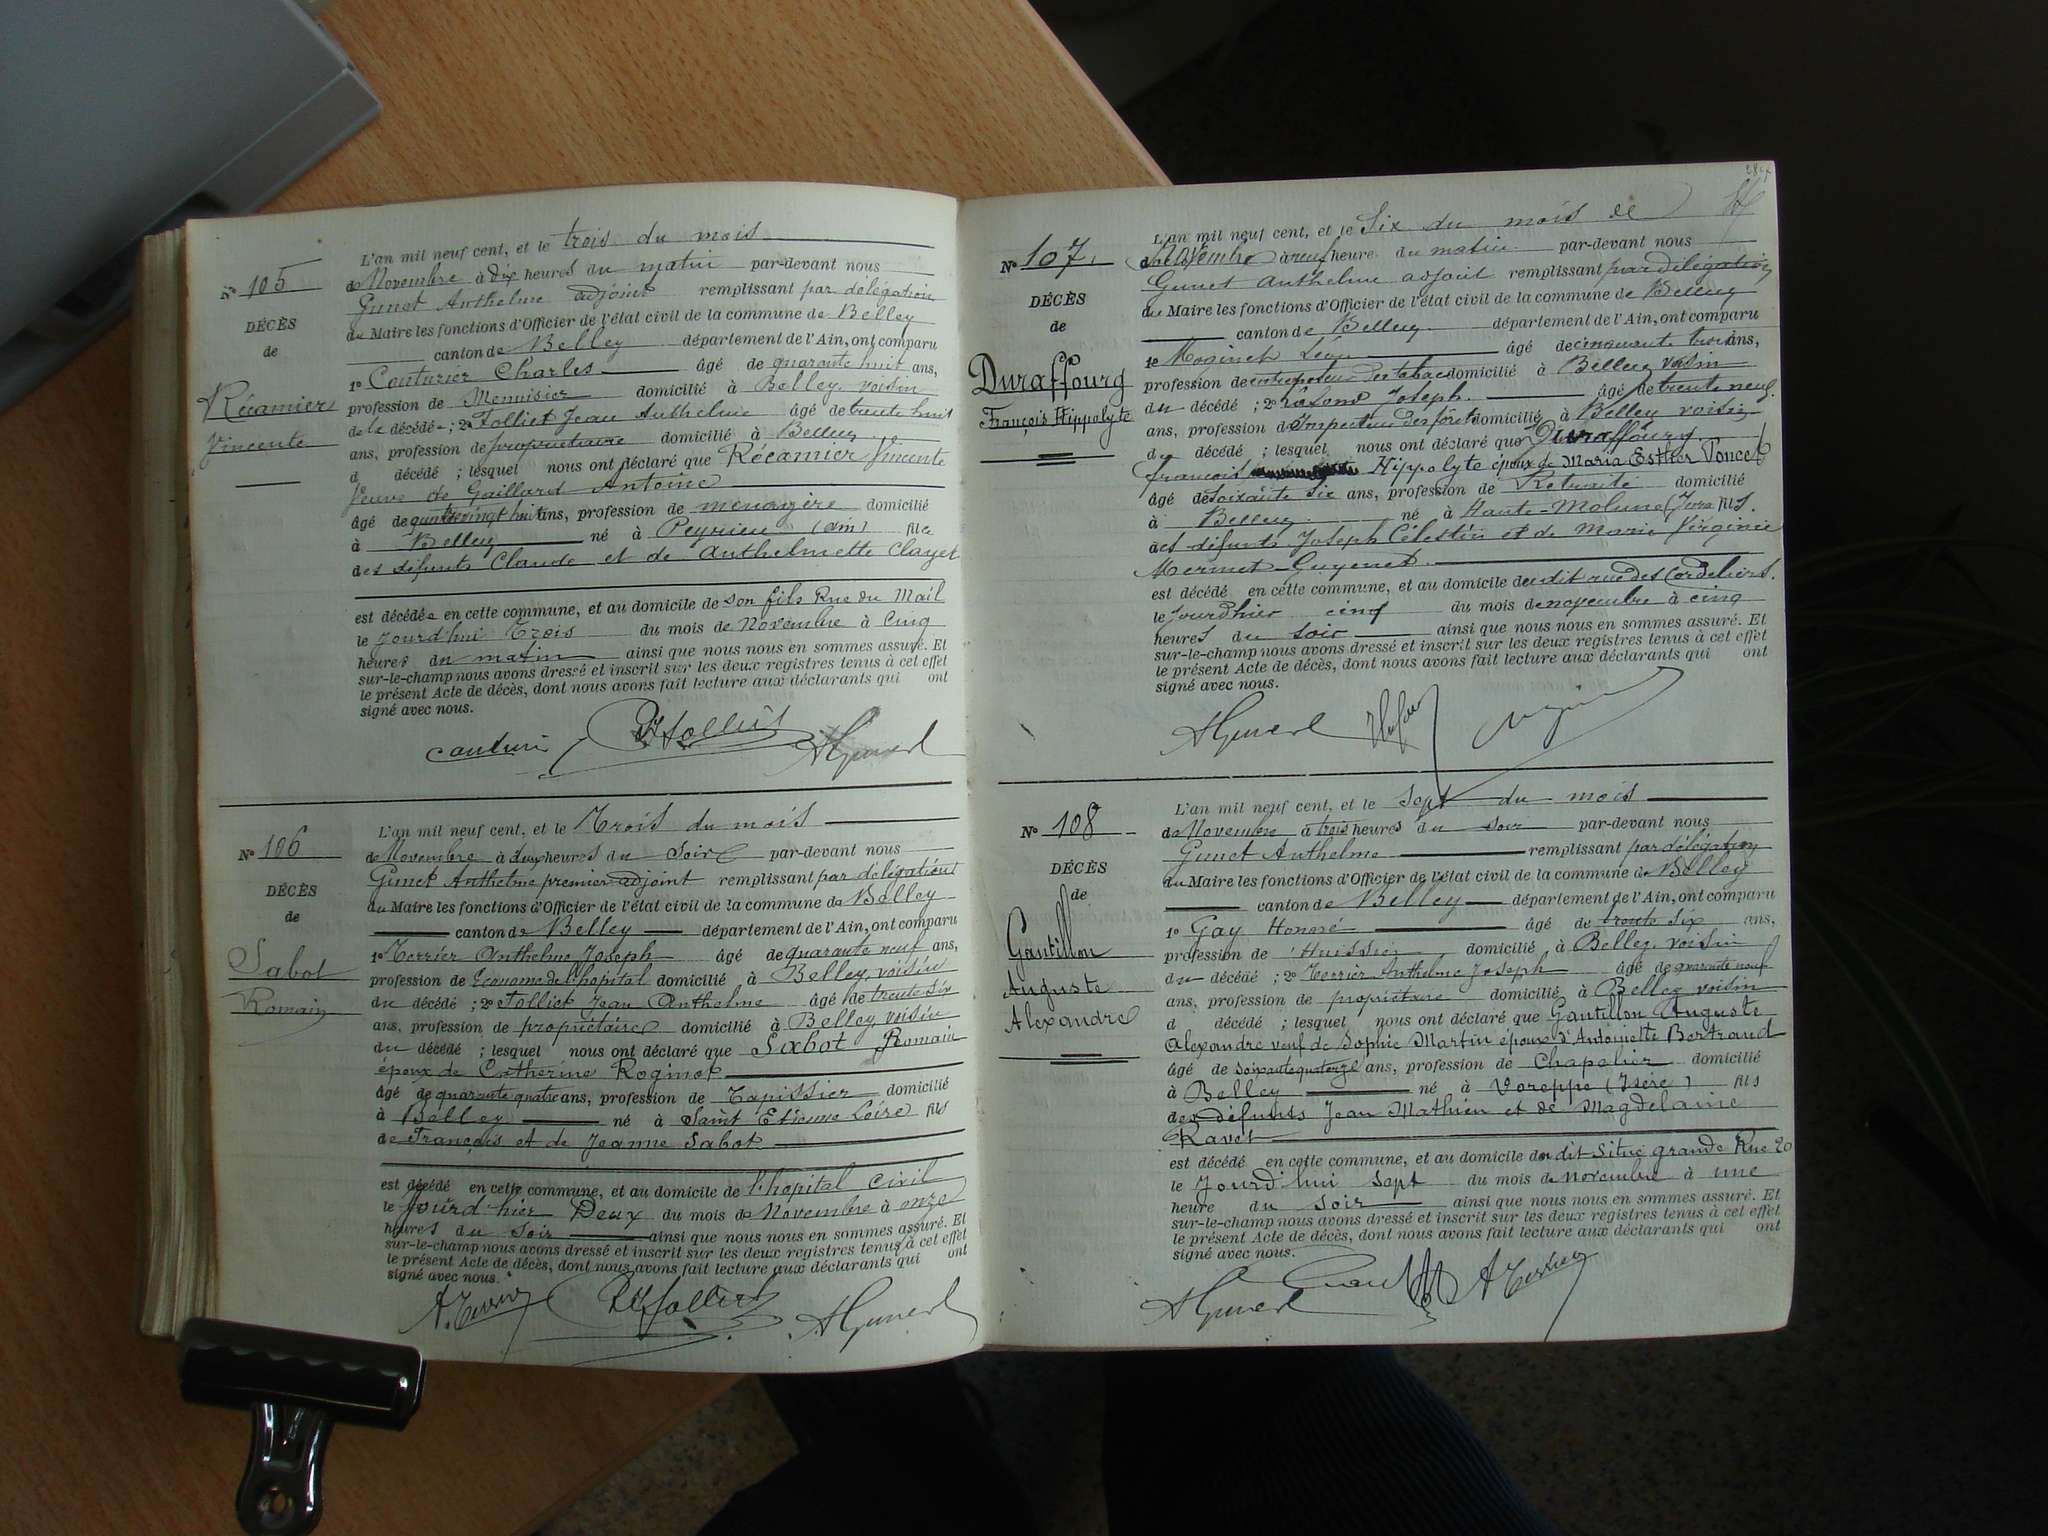 Nº 105
DÉCÈS
de
Récamier
Vincente
L'an mil neuf cent, et le trois du mois
de Novembre à dix heures du matin par-devant nous
Gunet Anthelme adjoint remplissant par délégation
du Maire les fonctions d'Officier de l'état civil de la commune de Belley
canton de Belley département de l'Ain, ont comparu
1º Couturier Charles âgé de quarante huit ans,
profession de Menuisier domicilié à Belley, voisin
de la décédée ; 2º Folliet Jean Anthelme âgé de trente huit
ans, profession de propriétaire domicilié à Belley
d décédé ; lesquel nous ont déclaré que Récamier Vincente
Veuve de Gaillard Antoine
âgé de quatrevingt huit ans, profession de ménagère domicilié
à Belley né à Peyrieu (ain) fille
des défunts Claude et de Anthelmette Clayet
est décédée en cette commune, et au domicile de son fils Rue du Mail
le jourd'hui Trois du mois de Novembre à cinq
heures du matin ainsi que nous nous en sommes assuré. Et
sur-le-champ nous avons dressé et inscrit sur les deux registres tenus à cet effet
le présent Acte de décès, dont nous avons fait lecture aux déclarants qui ont
signé avec nous.
Nº 106
DÉCÈS
de
Sabot
Romain
L'an mil neuf cent, et le Trois du mois
de Novembre à deux heures du soir par-devant nous
Gunet Anthelme premier adjoint remplissant par délégation
du Maire les fonctions d'Officier de l'état civil de la commune de Belley
canton de Belley département de l'Ain, ont comparu
1º Terrier Anthelme Joseph âgé de quarante neuf ans,
profession de Econome de l'hopital domicilié à Belley, voisin
du décédé ; 2º Folliet Jean Anthelme âgé de trente six
ans, profession de propriétaire domicilié à Belley, voisin
du décédé ; lesquel nous ont déclaré que Sabot Romain
époux de Catherine Roginot
âgé de quarante quatre ans, profession de Tapissier domicilié
à Belley né à Saint Etienne Loire fils
de François et de Jeanne Sabot
est décédé en cette commune, et au domicile de l'hopital civil
le jourd'hier Deux du mois de Novembre à onze
heures du soir ainsi que nous nous en sommes assuré. Et
sur-le-champ nous avons dressé et inscrit sur les deux registres tenus à cet effet
le présent Acte de décès, dont nous avons fait lecture aux déclarants qui ont
signé avec nous.
Nº 107
DÉCÈS
de
Duraffourg
François Hippolyte
L'an mil neuf cent, et le Six du mois de
Novembre à neuf heure du matin par-devant nous
Gunet Anthelme adjoint remplissant par délégation
du Maire les fonctions d'Officier de l'état civil de la commune de Belley
canton de Belley département de l'Ain, ont comparu
1º Moginet Léon âgé de cinquante trois ans,
profession de entreposeur des tabacs domicilié à Belley voisin
du décédé ; 2º Joseph âgé de trente neuf
ans, profession d'Inspecteur des forêts domicilié à Belley voisin
du décédé ; lesquel nous ont déclaré que Duraffourg
françois Hippolyte époux de Maria Esther Poncet
âgé de soixante six ans, profession de Retraité domicilié
à Belley né à Haute-Molune (Jura fils.
des défunts Joseph Célestin et de Marie Virginie
Mermet-Guyenet
est décédé en cette commune, et au domicile du dit rue des Cordeliers.
le jourd'hier cinq du mois de novembre à cinq
heures du soir ainsi que nous nous en sommes assuré. Et
sur-le-champ nous avons dressé et inscrit sur les deux registres tenus à cet effet
le présent Acte de décès, dont nous avons fait lecture aux déclarants qui ont
signé avec nous.
Nº 108
DÉCÈS
de
Gantillon
Auguste
Alexandre
L'an mil neuf cent, et le Sept du mois
de Novembre à trois heures du soir par-devant nous
Gunet Anthelme remplissant par délégation
du Maire les fonctions d'Officier de l'état civil de la commune de Belley
canton de Belley département de l'Ain, ont comparu
1º Gay Honoré âgé de trente six ans,
profession d'Huissier domicilié à Belley, voisin
du décédé ; 2º Terrier Anthelme Joseph âgé de quarante neuf
ans, profession de propriétaire domicilié à Belley voisin
d décédé ; lesquel nous ont déclaré que Gantillon Auguste
Alexandre veuf de Sophie Martin époux d'Antoinette Bertrand
âgé de ans, profession de Chapelier domicilié
à Belley né à Voreppe (Isère) fils
des défunts Jean Mathieu et de Magdelaine
Ravet
est décédé en cette commune, et au domicile du dit situé grande Rue 20
le Jourd'hui sept du mois de Novembre à une
heure du soir ainsi que nous nous en sommes assuré. Et
sur-le-champ nous avons dressé et inscrit sur les deux registres tenus à cet effet
le présent Acte de décès, dont nous avons fait lecture aux déclarants qui ont
signé avec nous.